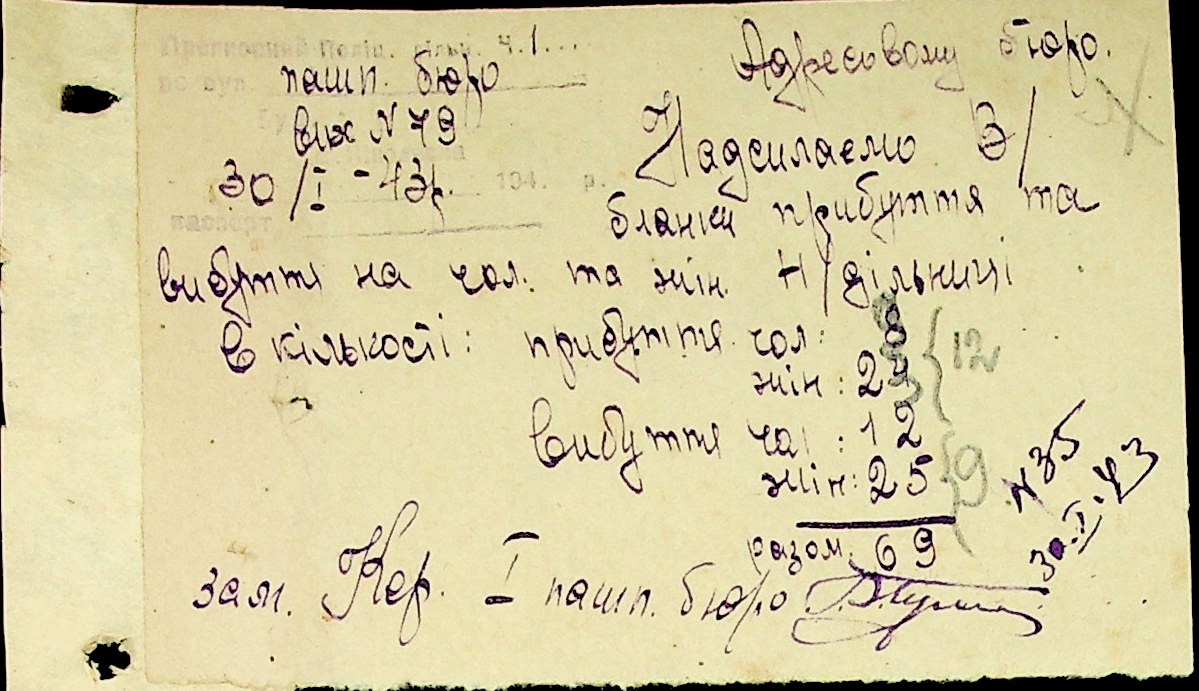 Прописаний Поліц. дільн. Ч.1...
по вул.
пашп. бюро
вих N 79
30/I - 43р.
194. р.
паспорт
Адресовому бюро.
Надсилаємо В/
бланки прибуття та
вибуття на чол. та жін. н/дільниці
в кількості: прибуття чол: 8
жін: 24
12
Вибуття чол: 12
жін: 25
9
разом: 69
N 35
30.I.43
зам. Кер. I пашп. бюро